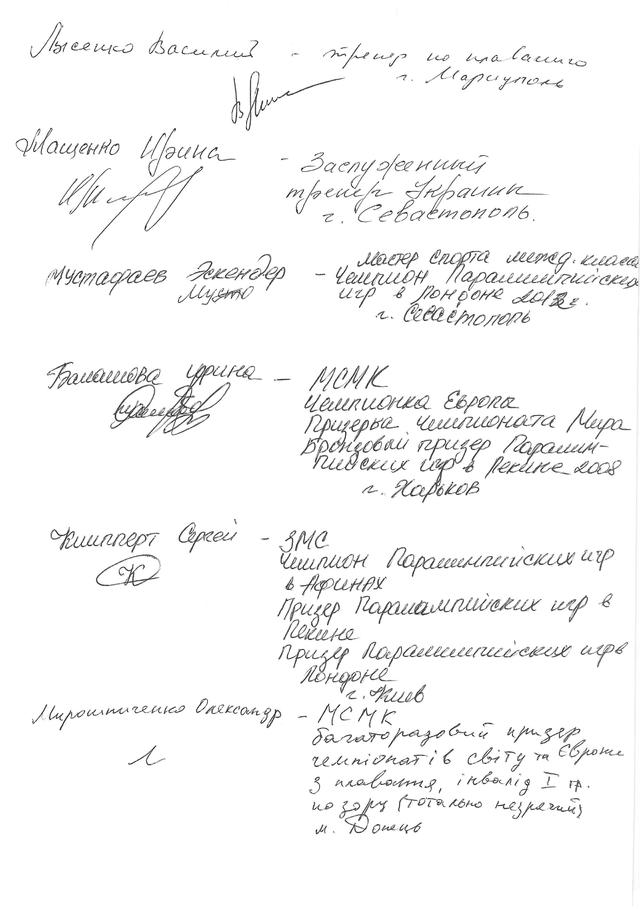 Лысенко Василий - тренер по плаванию
г. Мариуполь
Мащенко Ирина - Заслуженный
тренер Украины
г. Севастополь.
мастер спорта межд. класса
Мустафаев Эскендер - Чемпион Паралимпийских
Мусто игр в Лондоне 2012г.
г. Севастополь
Балашова Ирина - МСМК
Чемпионка Европы
Призерка Чемпионата Мира
Бронзовый призер Паралим-
пийских игр в Пекине 2008
г. Харьков
Клипперт Сергей - ЗМС
Чемпион Паралимпийских игр
в Афинах
К
Призер Паралимпийских игр в
Пекине
Призер Паралимпийских игр в
Лондоне
г. Киев
Мирошниченко Олександр - МСМК
багаторазовий призер
чемпіонатів світу та Європи
з плавання, інвалід I гр.
по зору (тотально незрячий)
м. Донецьк